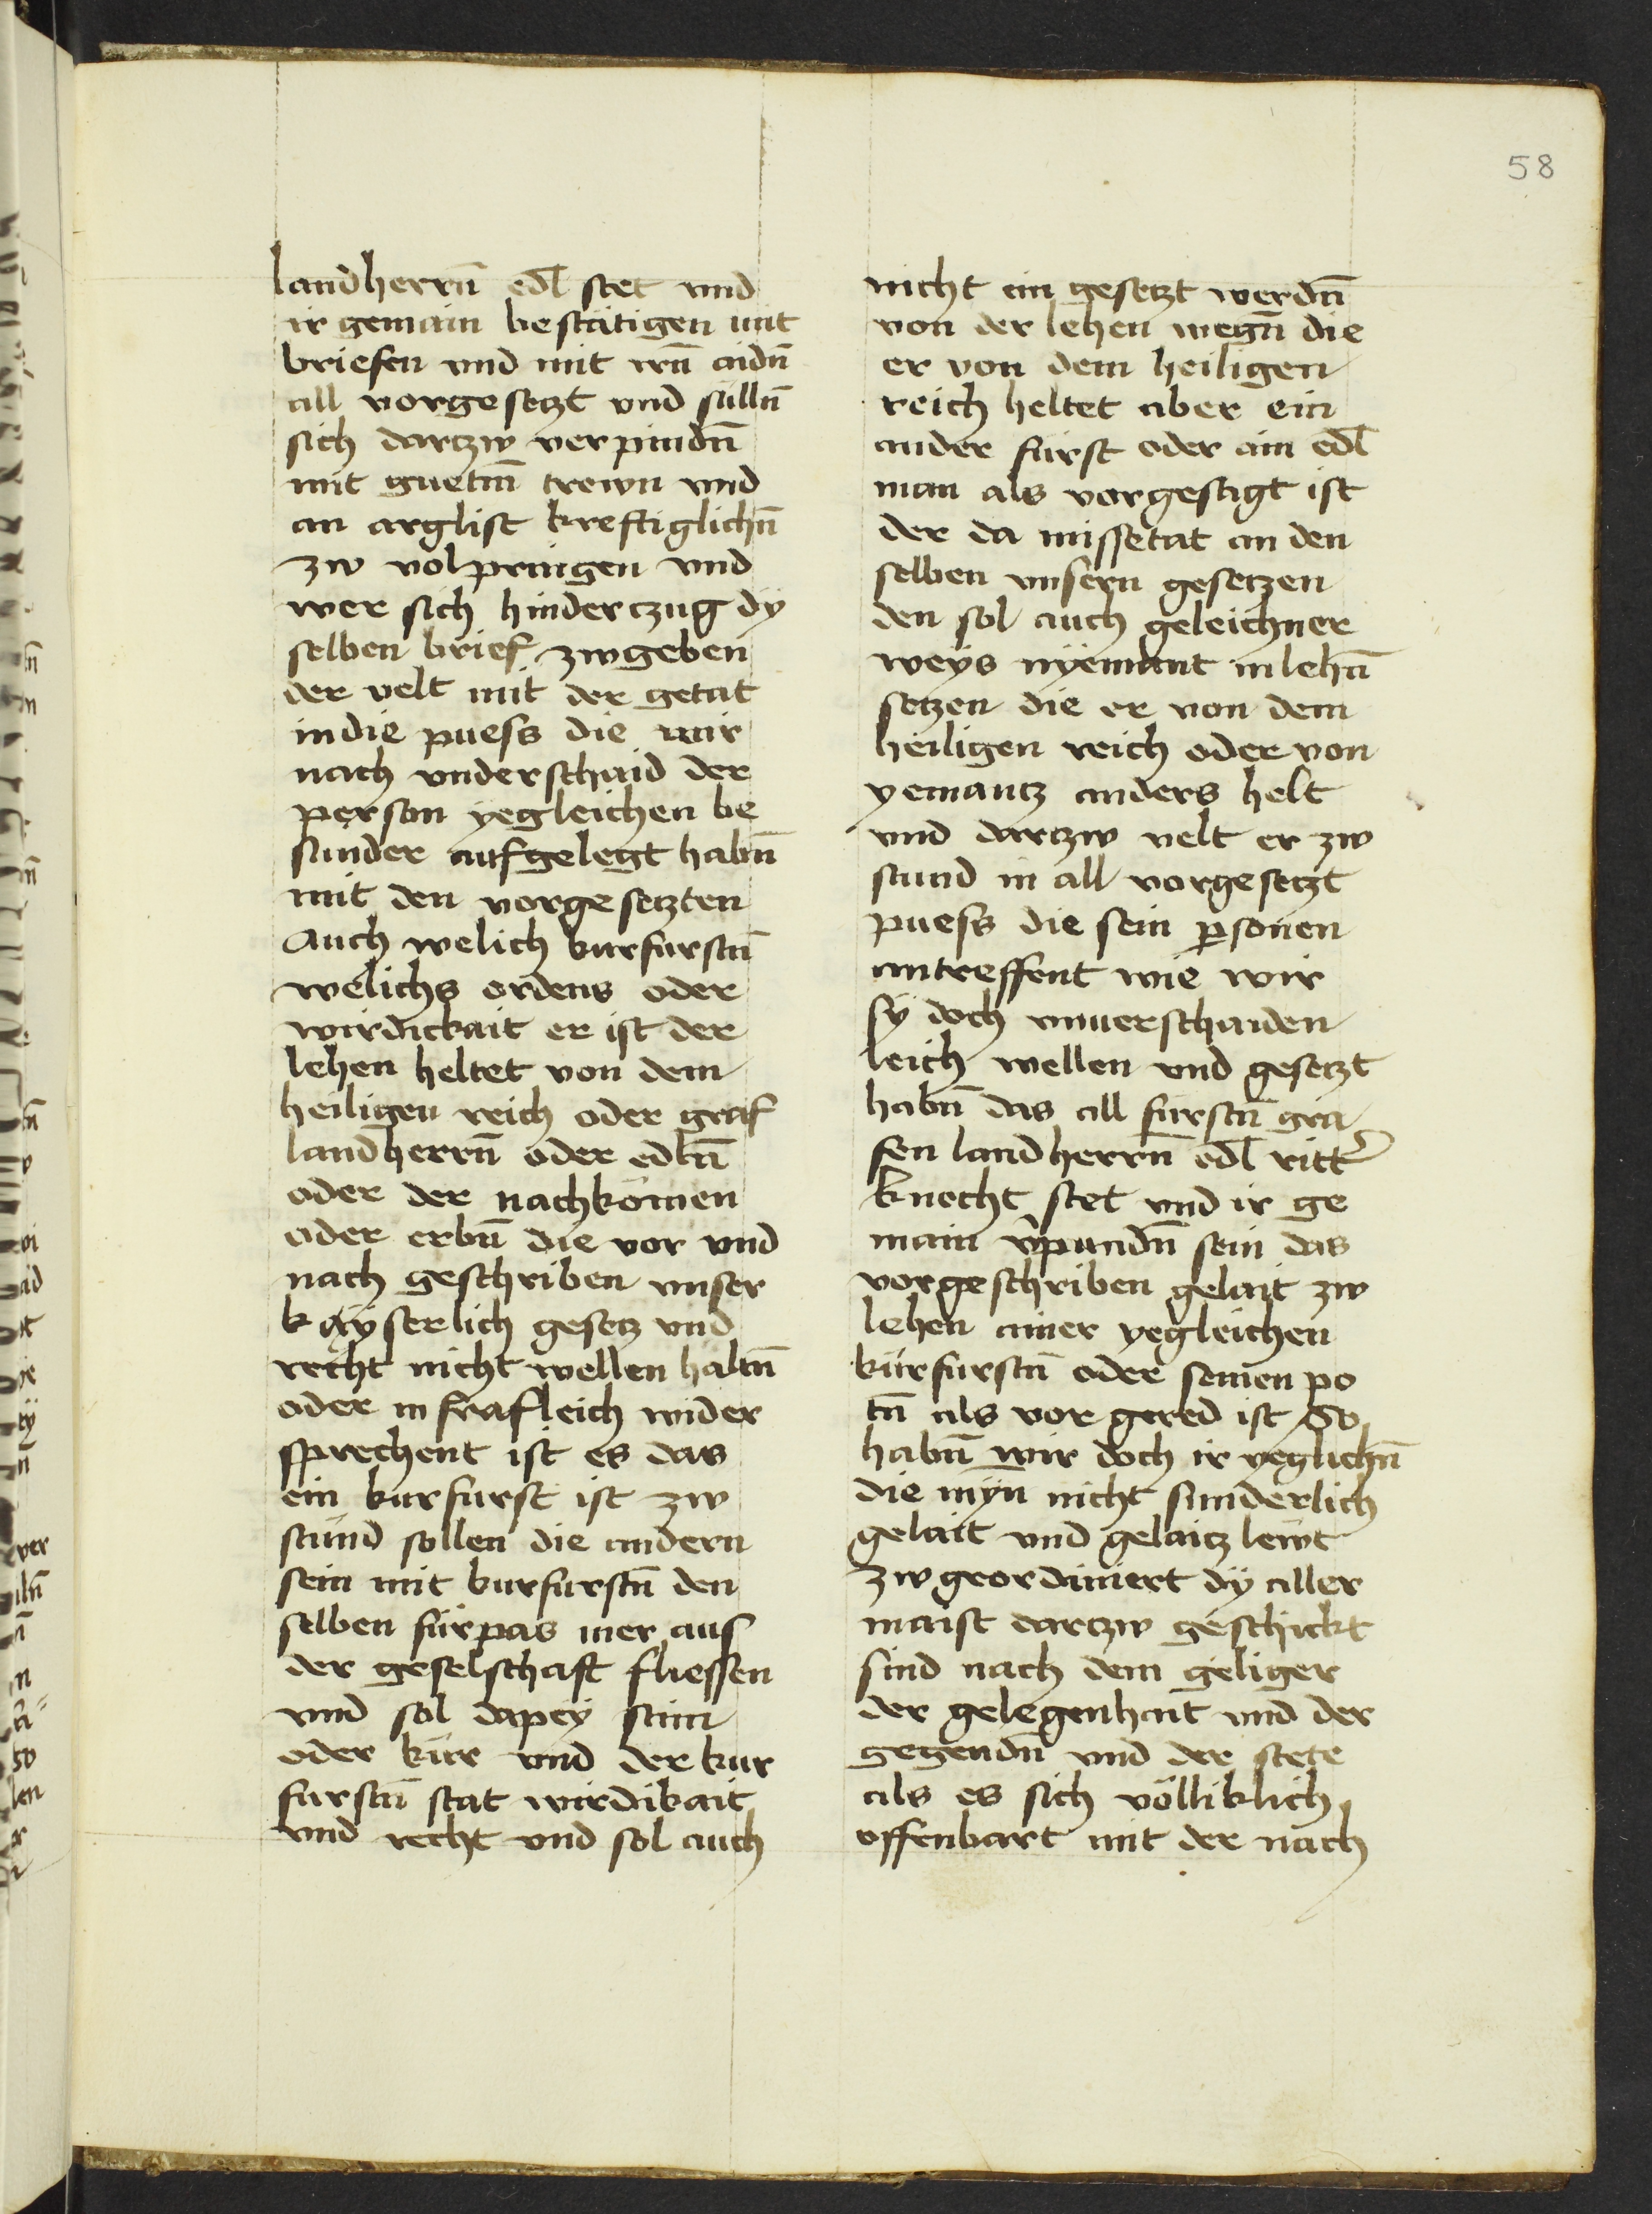 58
landherrn̄ edl̄ stet vnd
ir gemain bestätigen mit
briefen vnd mit irn̄ aidn̄
all vorgesetzt vnd sülln̄
sich dartzw verpindn̄
mit guetm̄ trewn vnd
an arglist kreftiglichn̄
zw volpringen vnd
wer sich hindertzug dÿ
selben brief zwgeben
der velt mit der getat
in die puess die wir
nach vnderschaid der
person yegleichen be
sunder aufgelegt habn̄
mit den vorgesetzten
Auch welich kurfurstn̄
welichs ordens oder
wirdickait er ist der
lehen heltet von dem
heiligen reich oder graf
landherrn̄ oder edln̄
oder der nachkömen
oder erbn̄ die vor vnd
nach geschriben vnser
kayserlich gesetz vnd
recht nicht wellen haltn̄
oder in frafleich wider
sprechent ist es das
ein kurfurst ist zw
stund sollen die andern
sein mit kurfurstn̄ den
selben fürpas mer aus
der geselschaft fliessen
vnd sol dapey stim
oder kür vnd der kur
furstn̄ stat wirdikait
vnd recht vnd sol auch
nicht ein gesetzt werdn̄
von der lehen wegn̄ die
er von dem heiligen
reich heltet aber ein
ander fürst oder ain edl̄
man als vorgesagt ist
der da missetat an den
selben vnsern gesetzen
den sol auch geleichner
weÿs nÿemant in lehn̄
setzen die er von dem
heiligen reich oder von
yemantz anders helt
vnd dartzw velt er zw
stund in all vorgesetzt
puess die sein ꝑsonen
antreffent wie wir
sÿ doch vnuerschaiden
leich wellen vnd gesetzt
habn̄ das all fürstn̄ gra
fen landherrn̄ edl̄ ritt᷑
knecht stet vnd ir ge
main v᷑pundn̄ sein das
vorgeschriben gelait zw
lehen ainer yegleichen
kürfurstn̄ oder seinen po
tn̄ als vor gered ist So
habn̄ wir doch ir yeglichn̄
die mÿn nicht sunderlich
gelait vnd gelaitz lewt
zw geordiniert dÿ aller
maist dartzw geschickt
sind nach dem geliger
der gelegenhait vnd der
gegendn̄ vnd der stete
als es sich völliklich
offenbart mit der nach